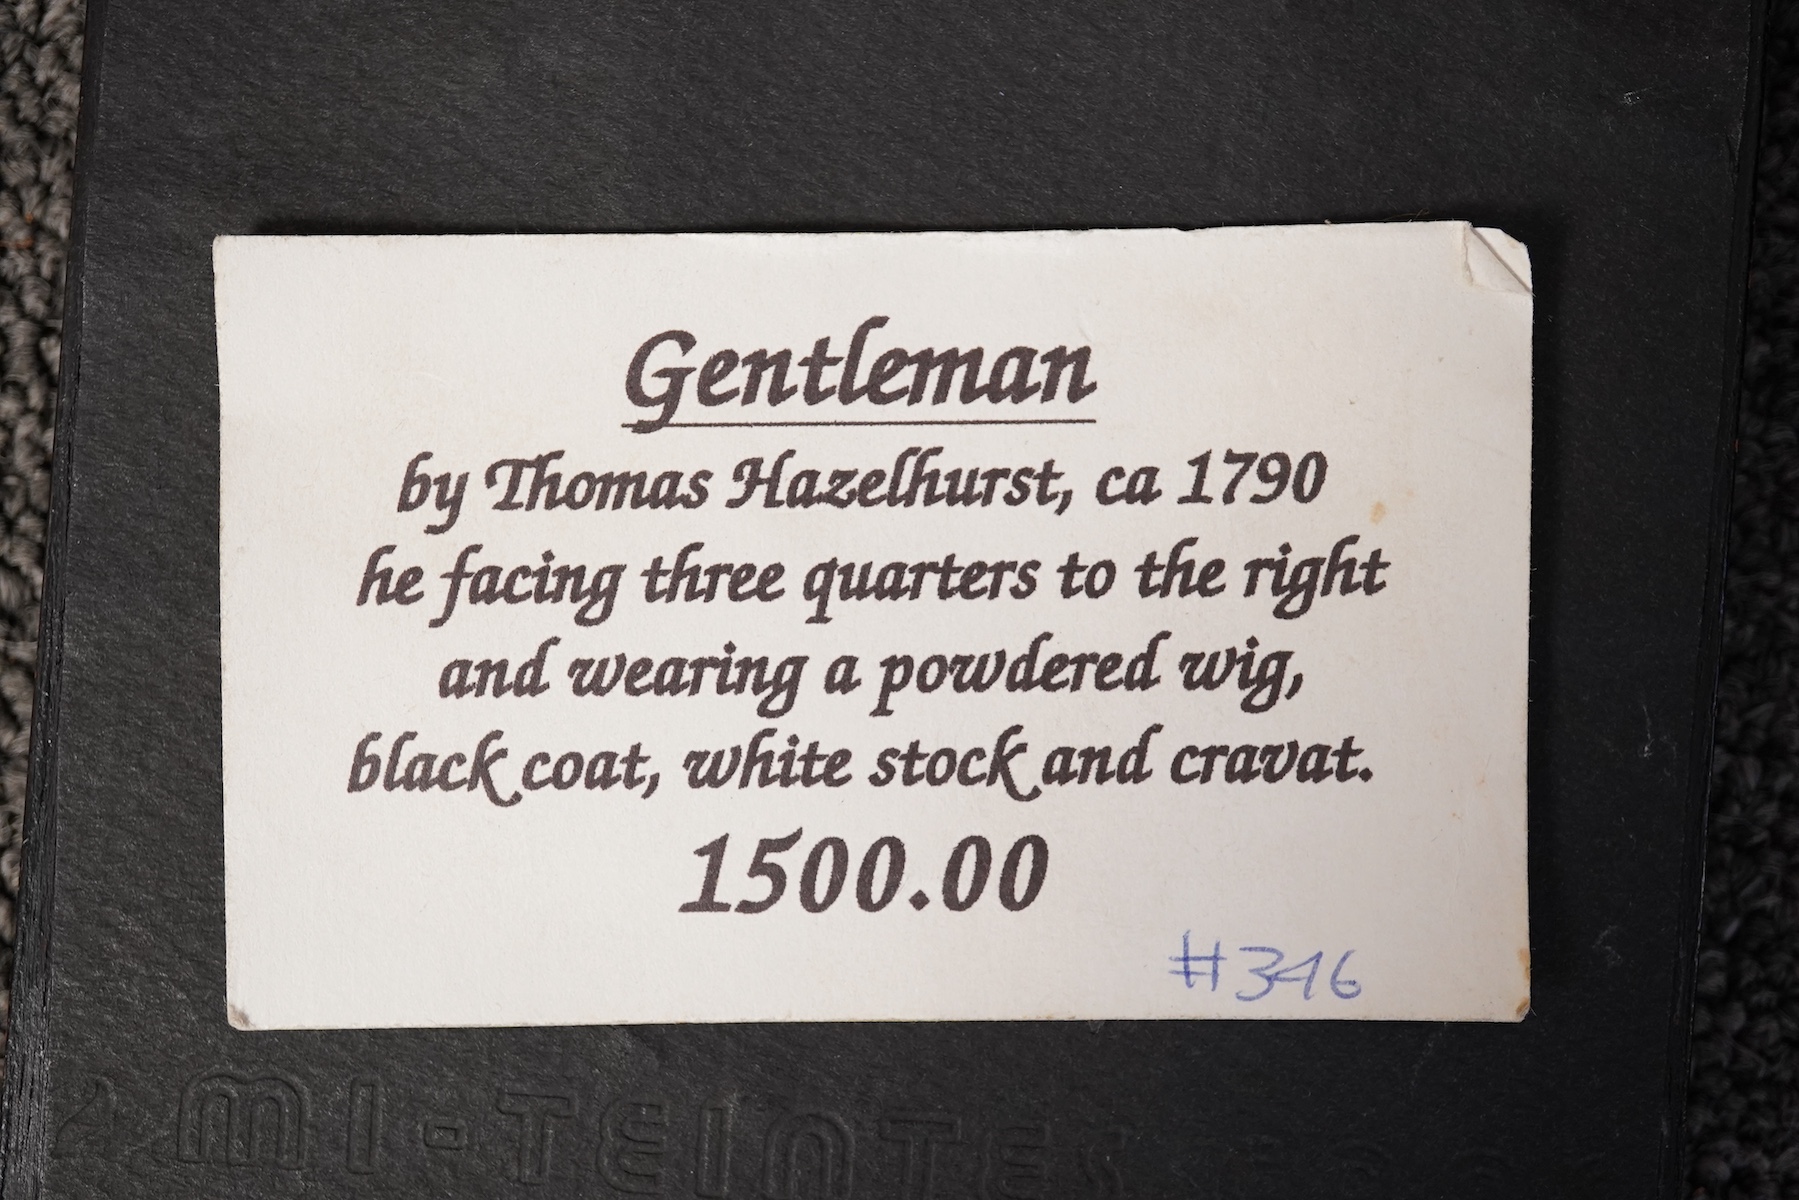 Gentleman
by Thomas Hazelhurst, ca 1790
he facing three quarters to the right
and wearing a powdered wig,
black coat, white stock and cravat.
1500.00
#346
MI-TEINTES